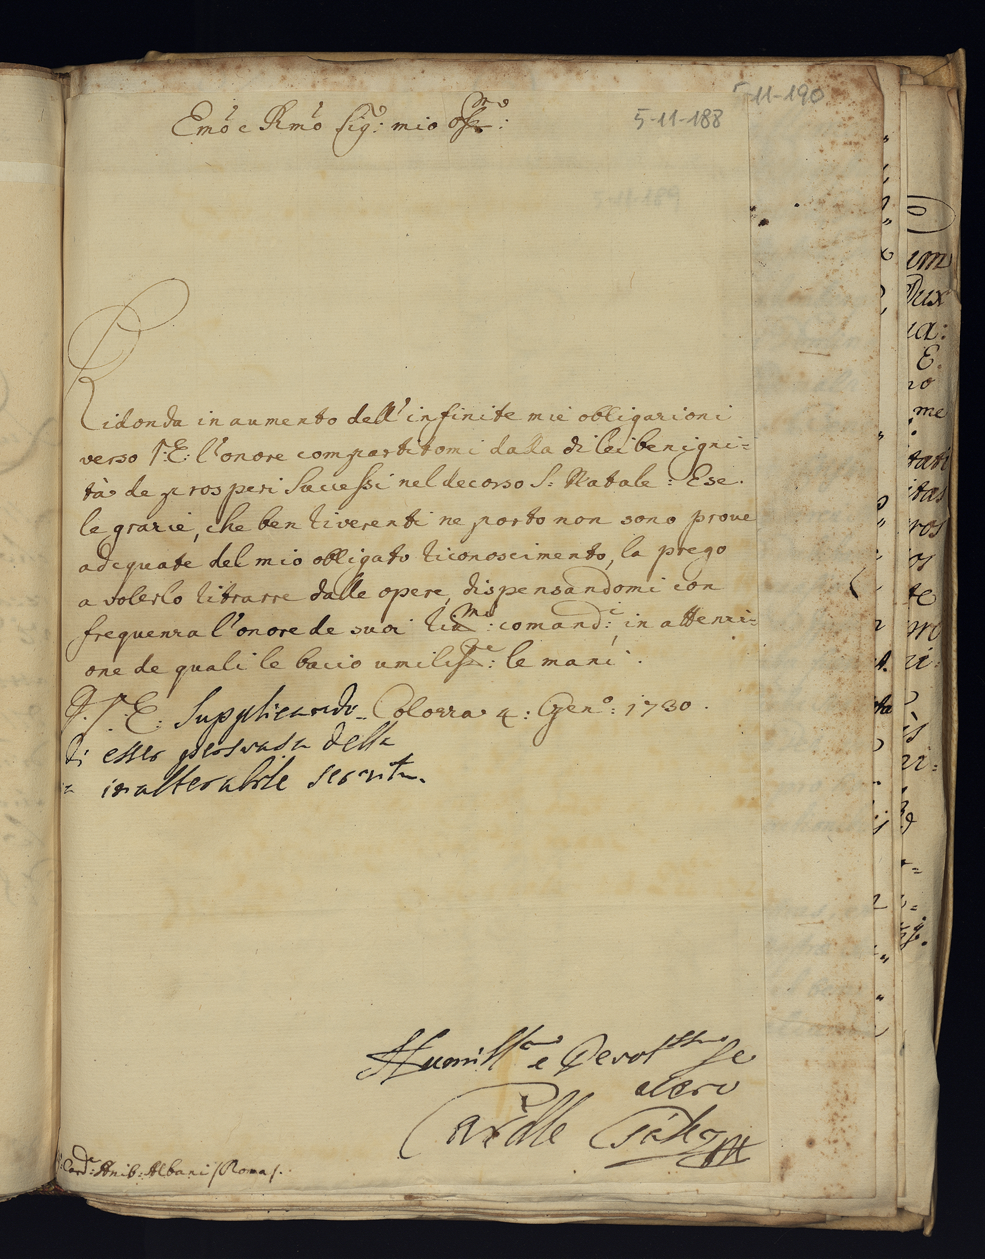 5-11-190
Emo e Rmo Sig: mio
5-11-188
5-11-189
Ridonda in aumento dell' infinite mie obligazioni
verso V: E: l'onore compartitomi dalla di lei benigni=
tà de prosperi Successi nel decorso S: Natale: E se
le grazie, che ben riverenti ne porto non sono prove
adequate del mio obligato riconoscimento, la prego
a volerlo ritrarre dalle opere, dispensandomi con
frequenza l'onore de suoi comand:i in attenzi=
one de quali le bacio umiliss: le mani.
D. V. E: Supplicando Colozza 4: Gen:o 1730.
di esser persuasa della
inalterabile servitu
Humill e Devot Se
vero
Cardle Csáky
Card: Annib: Albani /Roma/.